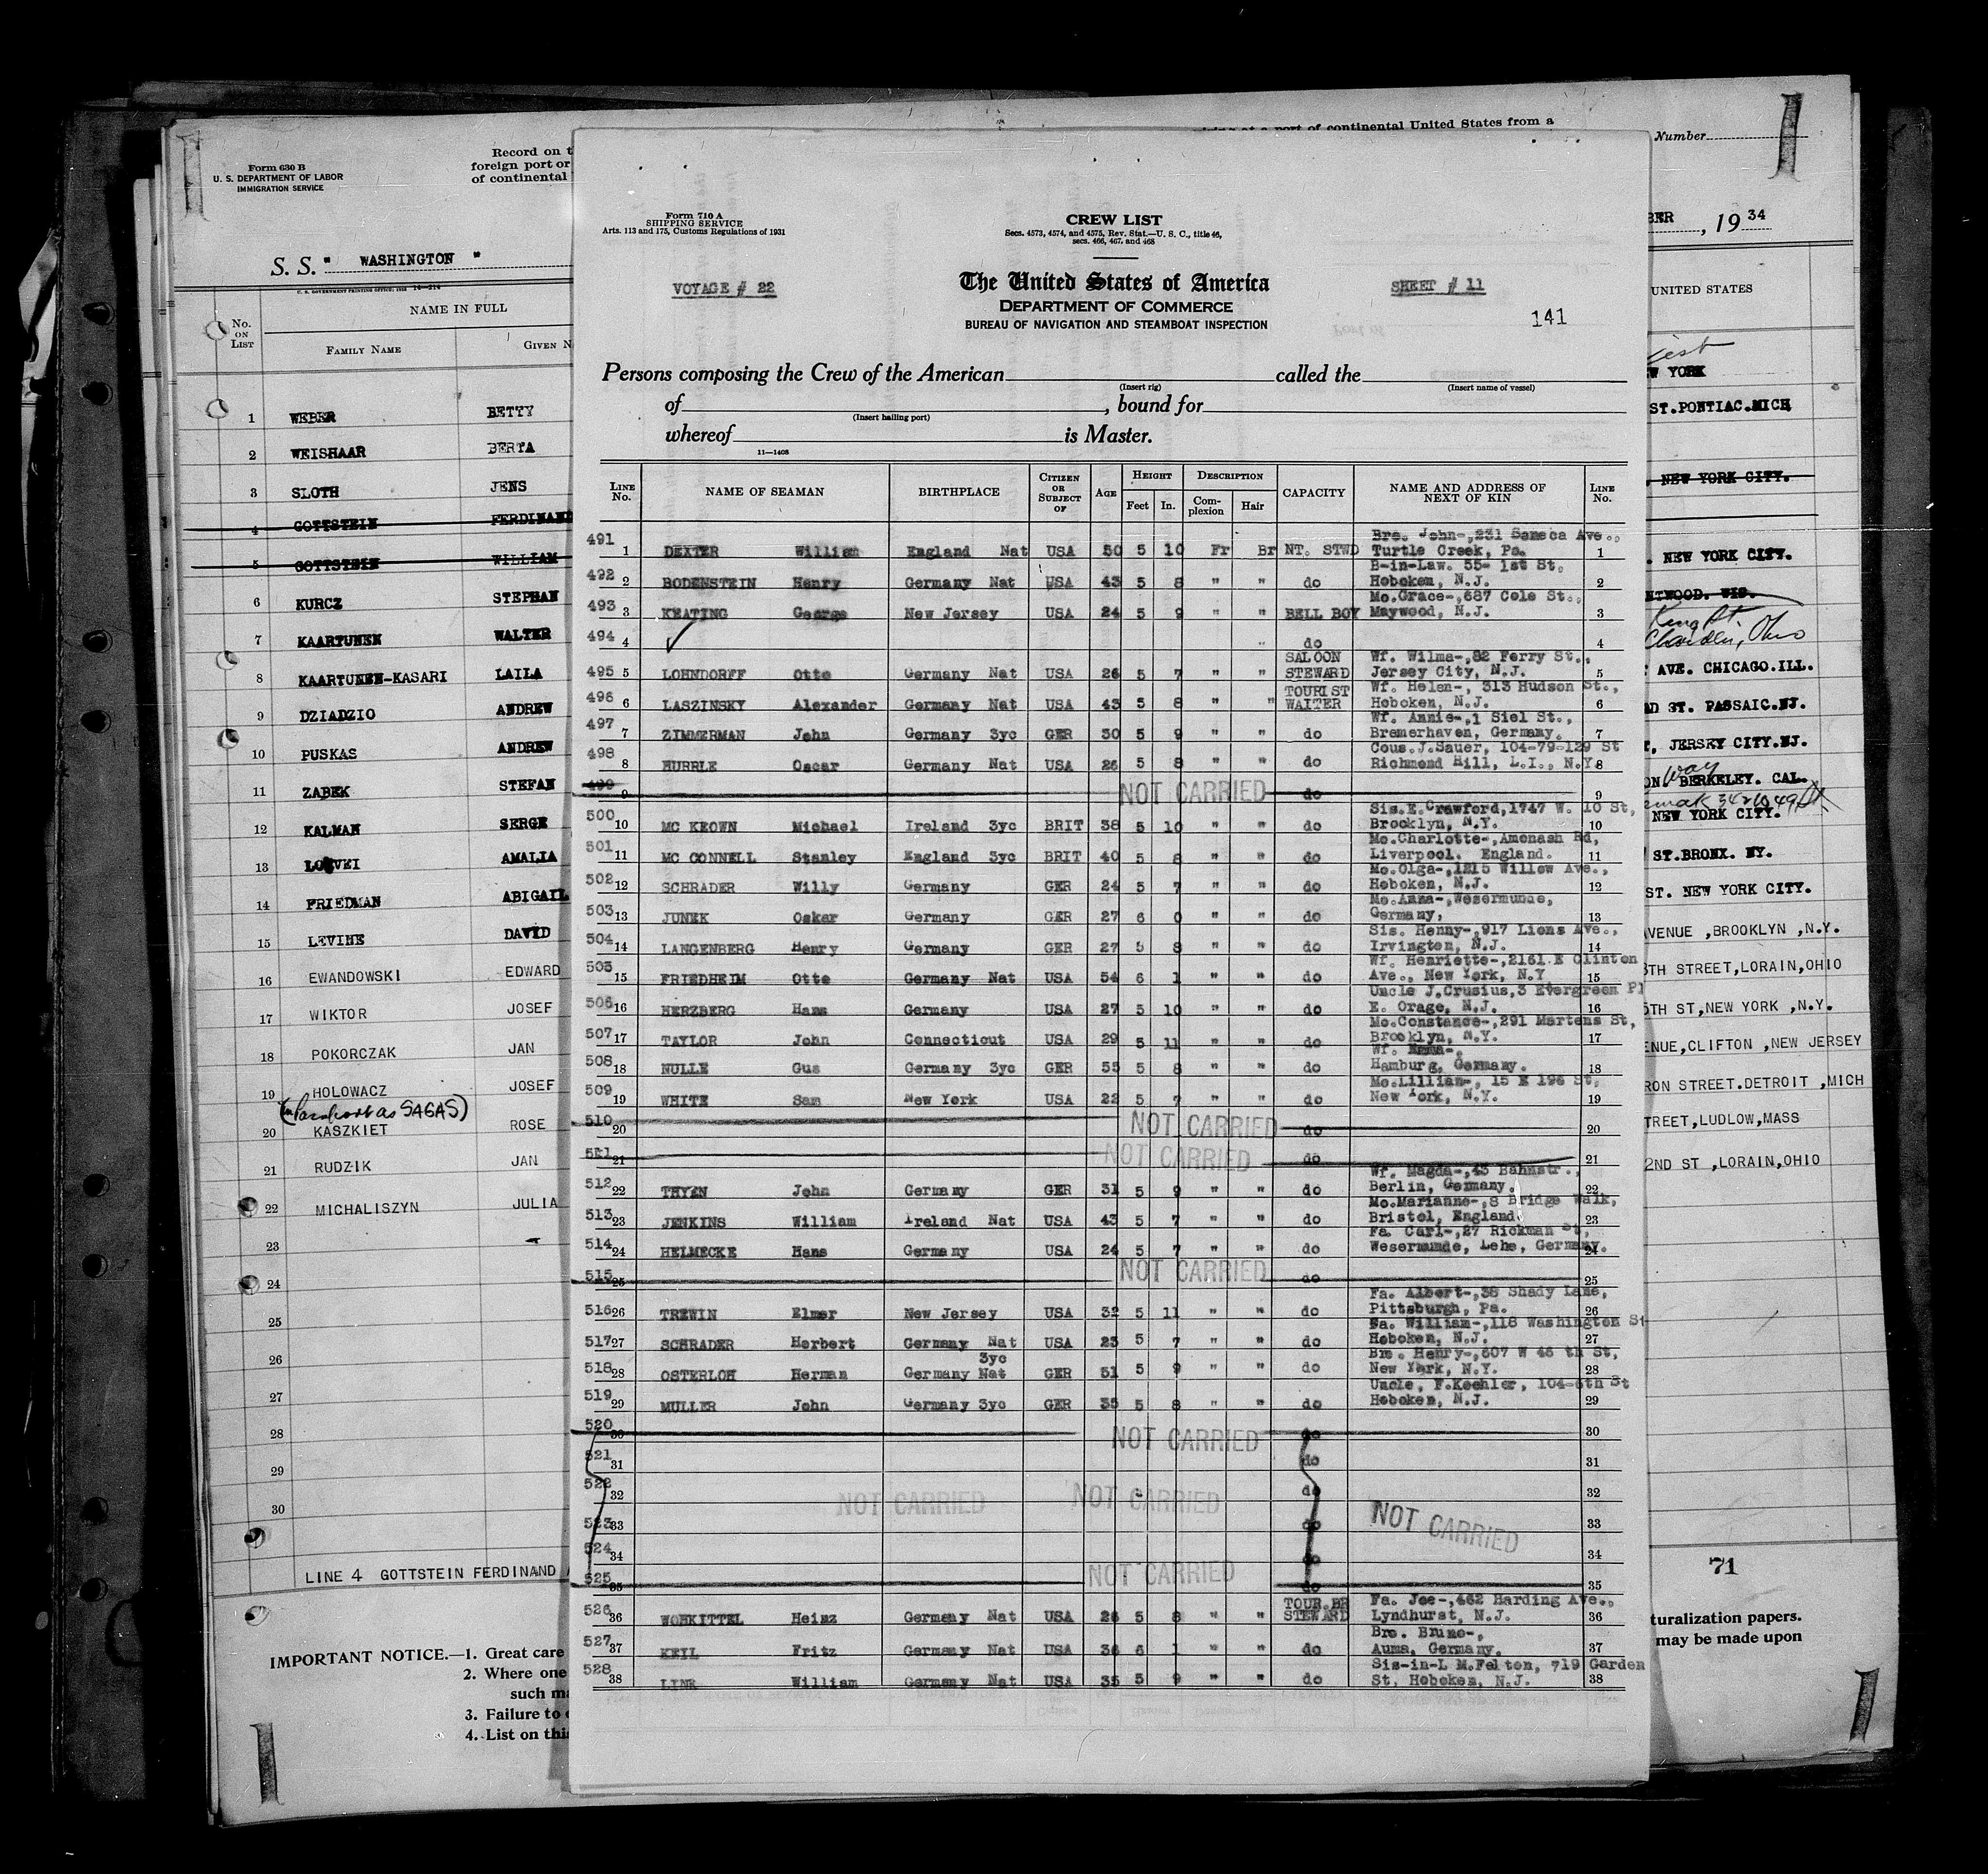 Form 630 B
U. S. DEPARTMENT OF LABOR
IMMIGRATION SERVICE
Record on
foreign port or
of continental
S. S. " WASHINGTON "
No. ON LIST
NAME IN FULL
FAMILY NAME GIVEN N
1 WEBER BETTY
2 WEISHAAR BERTA
3 SLOTH JENS
4 GOTTSTEIN FERDINAND
5 GOTTSTEIN WILLIAM
6 KURCZ STEPHAN
7 KAARTUNEN WALTER
8 KAARTUNEN-KASARI LAILA
9 DZIADZIO ANDREW
10 PUSKAS ANDREW
11 ZABEK STEFAN
12 KALMAN SERGE
13 AMALIA
14 FRIEDMAN ABIGAIL
15 LEVINE DAVID
16 EWANDOWSKI EDWARD
17 WIKTOR JOSEF
18 POKORCZAK JAN
19 HOLOWACZ JOSEF
(in Passport as SAGAS)
20 KASZKIET ROSE
21 RUDZIK JAN
22 MICHALISZYN JULIA
23
24
25
26
27
28
29
30
LINE 4 GOTTSTEIN FERDINAND
IMPORTANT NOTICE.—1. Great care
2. Where one
such ma
3. Failure to
4. List on thi
Form 710 A
SHIPPING SERVICE
Arts. 113 and 175, Customs Regulations of 1931
CREW LIST
Secs. 4573, 4574, and 4575, Rev. Stat.—U. S. C., title 46,
secs. 466, 467, and 468
VOYAGE # 22
The United States of America
SHEET # 11
DEPARTMENT OF COMMERCE
BUREAU OF NAVIGATION AND STEAMBOAT INSPECTION
141
Persons composing the Crew of the American called the
(Insert rig) (Insert name of vessel)
of , bound for
(Insert hailing port)
whereof is Master.
11—1408
LINE No. NAME OF SEAMAN BIRTHPLACE CITIZEN OR SUBJECT OF AGE HEIGHT Feet In. DESCRIPTION Complexion Hair CAPACITY NAME AND ADDRESS OF NEXT OF KIN LINE No.
Bro. John-,231 Seneca Ave.,
491 1 DEXTER William England Nat USA 50 5 10 Fr Br NT. STWD Turtle Creek, Pa. 1
B-in-Law. 55- 1st St,
492 2 BODENSTEIN Henry Germany Nat USA 43 5 8 " " do Hoboken, N.J. 2
Mo.Grace-,687 Cole St.,
493 3 KEATING George New Jersey USA 24 5 9 " " BELL BOY Maywood, N.J. 3
494 4 do 4
SALOON Wf. Wilma-,82 Ferry St.,
495 5 LOHNDORFF Otto Germany Nat USA 26 5 7 " " STEWARD Jersey City, N.J. 5
TOURIST Wf. Helen-, 313 Hudson St.,
496 6 LASZINSKY Alexander Germany Nat USA 43 5 8 " " WAITER Hoboken, N.J. 6
Wf. Annie-,1 Siel St.,
497 7 ZIMMERMAN John Germany 3yc GER 30 5 9 " " do Bremerhaven, Germany. 7
Cous.J.Sauer, 104-79-129 St
498 8 HURRLE Oscar Germany Nat USA 26 5 8 " " do Richmond Hill, L.I., N.Y. 8
499 9 NOT CARRIED do 9
Sis.E.Crawford,1747 W. 10 St,
500 10 MC KEOWN Michael Ireland 3yc BRIT 38 5 10 " " do Brooklyn, N.Y. 10
Mo.Charlotte-,Amenash Rd,
501 11 MC CONNELL Stanley England 3yc BRIT 40 5 8 " " do Liverpool. England. 11
Mo.Olga-,1215 Willow Ave.,
502 12 SCHRADER Willy Germany GER 24 5 7 " " do Hoboken, N.J. 12
Mo.Anna-,Wesermunde,
503 13 JUNEK Oskar Germany GER 27 6 0 " " do Germany, 13
Sis. Henny-,917 Lions Ave.,
504 14 LANGENBERG Henry Germany GER 27 5 8 " " do Irvington, N.J. 14
Wf. Henriette-,2161 E Clinton
505 15 FRIEDHEIM Otto Germany Nat USA 54 6 1 " " do Ave., New York, N.Y 15
Uncle J.Crusius,3 Evergreen Pl
506 16 HERZBERG Hans Germany USA 27 5 10 " " do E. Orage, N.J. 16
Mo.Constance-,291 Martens St,
507 17 TAYLOR John Connecticut USA 29 5 11 " " do Brooklyn, N.Y. 17
Wf.
508 18 NULLE Gus Germany 3yc GER 55 5 8 " " do Hamburg, Germany. 18
Mo.Lillian-, 15 E 196 St,
509 19 WHITE Sam New York USA 22 5 7 " " do New York, N.Y. 19
510 20 NOT CARRIED do 20
511 21 NOT CARRIED do 21
Wf. Magda-,43 Bahnstr.,
512 22 THYEN John Germany GER 31 5 9 " " do Berlin, Germany. 22
Mo.Marianne-,8 Bridge Walk,
513 23 JENKINS William Ireland Nat USA 43 5 7 " " do Bristol, England 23
Fa. Carl-,27 Rickman St,
514 24 HELMECKE Hans Germany USA 24 5 7 " " do Wesermunde, Lehe, Germany. 24
515 25 NOT CARRIED do 25
Fa. Albert-,38 Shady Lane,
516 26 TREWIN Elmer New Jersey USA 32 5 11 " " do Pittsburgh, Pa. 26
Fa. William-,118 Washington St
517 27 SCHRADER Herbert Germany Nat USA 23 5 7 " " do Hoboken, N.J. 27
3yc Bro. Henry-,507 W 46 th St,
518 28 OSTERLOH Herman Germany Nat GER 51 5 9 " " do New York, N.Y. 28
Uncle, F.Koehler, 104-6th St
519 29 MULLER John Germany 3yc GER 35 5 8 " " do Hoboken, N.J. 29
520 30 NOT CARRIED do 30
521 31 do 31
522 32 NOT CARRIED NOT CARRIED do 32
523 33 do NOT CARRIED 33
524 34 do 34
525 35 NOT CARRIED do 35
TOUR.BR Fa. Joe-,462 Harding Ave.,
526 36 WOHKITTEL Heinz Germany Nat USA 26 5 8 " " STEWARD Lyndhurst, N.J. 36
Bro. Bruno-,
527 37 KEIL Fritz Germany Nat USA 36 6 1 " " do Auma, Germany. 37
Sis-in-L M.Felton, 719 Garden
528 38 LINK William Germany Nat USA 35 5 9 " " do St, Hoboken, N.J. 38
at a port of continental United States from a
Number
BER , 19 34
UNITED STATES
W YORK
ST.PONTIAC.MICH
. NEW YORK CITY.
. NEW YORK CITY.
NTWOOD. WIS.
King St.
Chandler, Ohio
AVE. CHICAGO.ILL.
D ST. PASSAIC.NJ.
, JERSEY CITY.NJ.
Way
ON BERKELEY. CAL.
NEW YORK CITY.
ST.BRONX. NY.
ST. NEW YORK CITY.
AVENUE ,BROOKLYN ,N.Y.
8TH STREET,LORAIN,OHIO
5TH ST,NEW YORK ,N.Y.
ENUE,CLIFTON ,NEW JERSEY
RON STREET.DETROIT ,MICH
TREET,LUDLOW,MASS
2ND ST ,LORAIN,OHIO
71
turalization papers.
may be made upon